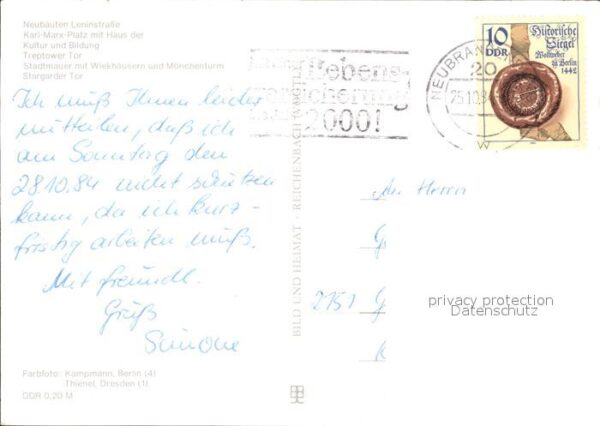 Neubauten Leninstraße
Karl-Marx-Platz mit Haus der
Kultur und Bildung
Treptower Tor
Stadtmauer mit Wiekhäusern und Mönchenturm
Stargarder Tor
10
DDR
Historische
Siegel
Wollweber
zu Berlin
1442
NEUBRAN
20
25.10.84
W
Lebens-
versicherung
2000!
Ich muß Ihnen leider
mitteilen, daß ich
am Sonntag den
28.10.84 nicht
kann, da ich kurz-
fristig arbeiten muß.
Mit freundl.
Gruß
Simone
An Herrn
G
2151 G
K
BILD UND HEIMAT · REICHENBACH (VOGTL)
privacy protection
Datenschutz
Farbfoto: Kampmann, Berlin (4)
Thienel, Dresden (1)
DDR 0,20 M